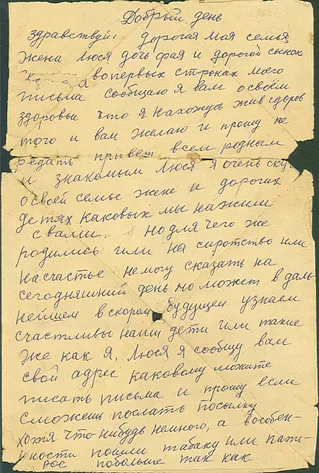 Добрый день
здравствуй, дорогая моя семья
жена Люся дочь фая и дорогой сынок
я вопервых строках моего
письма сообщаю я вам освоем
здоровьи что я нахожусь жив здоров
того и вам желаю и прошу пе
редать привет всем родным
и знакомым Люся я очень ску
освоей семье жене и дорогих
детях каковых мы нажили
с вами. но для чего же
родились или на сиротство или
насчастье немогу сказать на
сегодняшний день но может в даль
нейшем вскором будущем узнаем
счастливы наши дети или такие
же как я. Люся я сообщу вам
свой адрес каковому можите
писать письма и прошу если
сможешь послать посылку
хотя что нибудь немного, а вособен-
ности пошли табаку или папи-
рос побольше так как